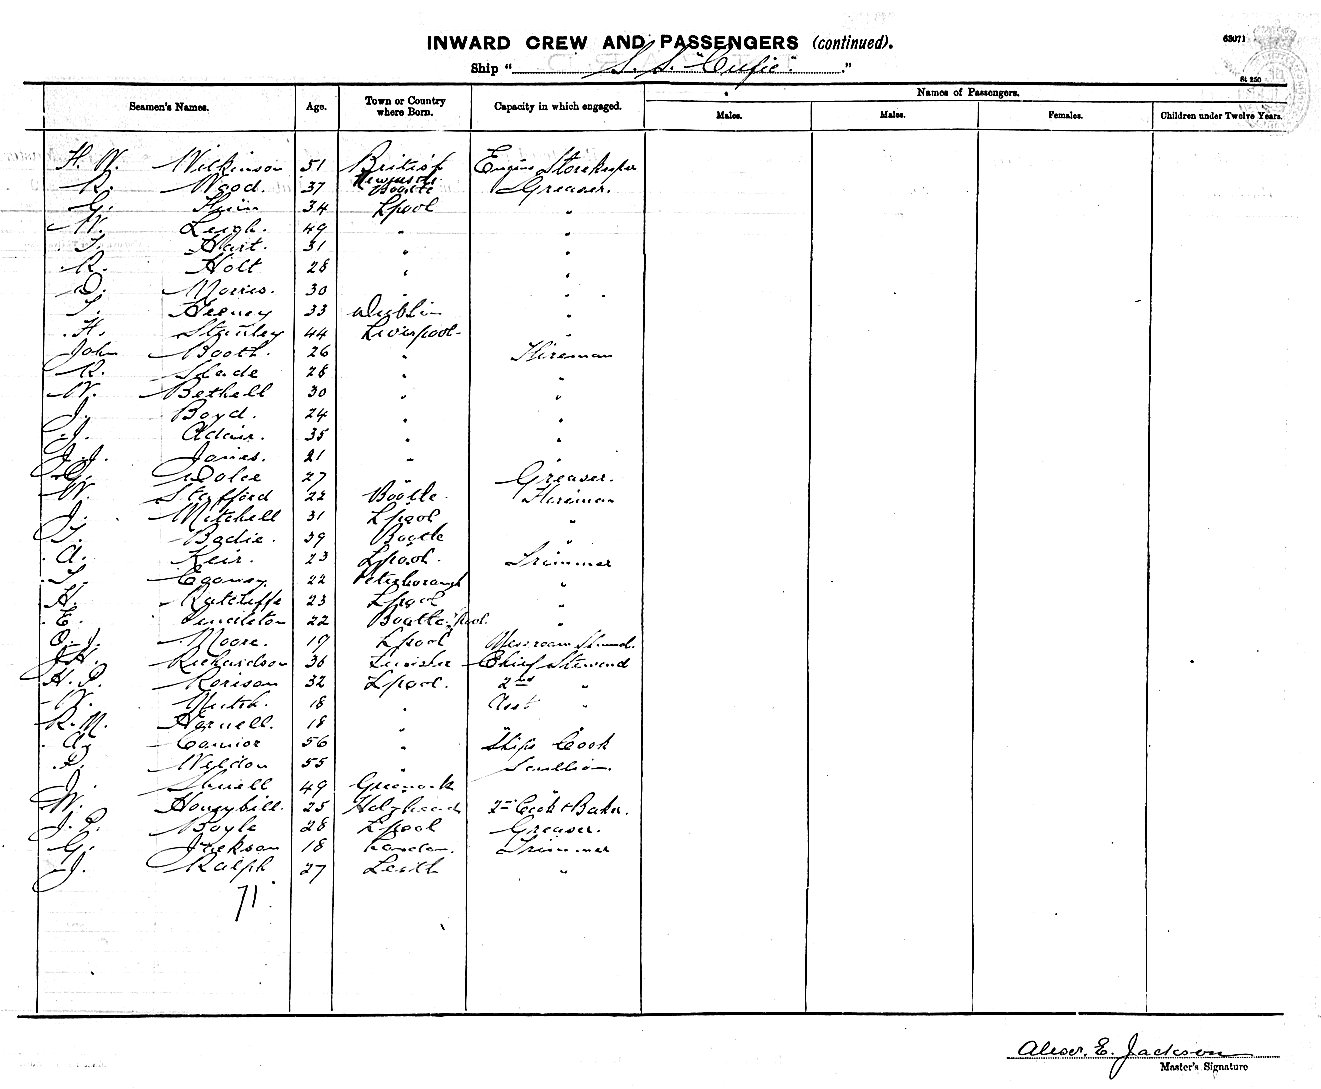 63071
INWARD CREW AND PASSENGERS (continued).
Ship " S. S. "Cufic" ."
St 250
Seamen's Names. Age. Town or Country where Born. Capacity in which engaged. Names of Passengers.
Males. Males. Females. Children under Twelve Years.
H. W. Wilkinson 51 British Engine Storekeeper
R. Wood. 37 Bootle Greaser.
G. 34 Lpool "
W. Leigh. 49 " "
T. Hart. 31 " "
R. Holt 28 " "
D. Morris. 30 " "
T. Heeney 33 Dublin "
H. Stanley 44 Liverpool "
John Booth. 26 " Fireman
R. Slade 28 " "
W. Bethell 30 " "
J. Boyd. 24 " "
J. Adair. 35 " "
J. J. Jones. 21 " "
27 " Greaser.
W. Stafford 22 Bootle Fireman
J. Mitchell 31 Lpool "
T. Badie. 39 Bootle "
A. Keir. 23 Lpool. Trimmer
T. 22 Peterborough "
H. Ratcliffe 23 Lpool "
E. Pendleton 22 Bootle "
O. J. Moore. 19 Lpool Messroom Steward.
J. H. Richardson 36 Leicester Chief Steward
H. P. Rorison 32 Lpool. 2nd "
W. 18 " Asst "
R. M. Hornell. 18 "
A. 56 " Ships Cook
P. Weldon 55 " Scullion.
J. 49 Greenock
W. Honeybill. 25 Holyhead 2nd Cook & Baker.
J. P. Boyle 28 Lpool Greaser.
G. Jackson 18 London. Trimmer
J. Ralph 27 Leith "
71
Alexr. E. Jackson
Master's Signature